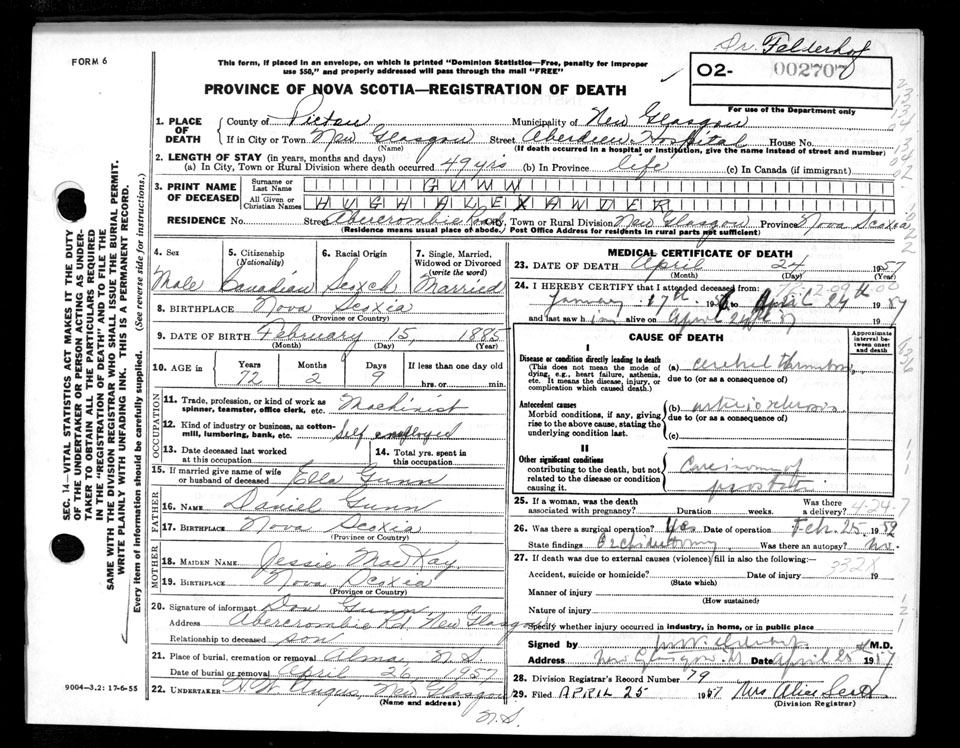 Dr. Felderhof
FORM 6
This form, if placed in an envelope, on which is printed "Dominion Statistics—Free, penalty for improper
use $50," and properly addressed will pass through the mail "FREE"
02- 002707
PROVINCE OF NOVA SCOTIA—REGISTRATION OF DEATH
For use of the Department only
1. PLACE OF DEATH
County of Pictou Municipality of New Glasgow
If in City or Town New Glasgow Street Aberdeen Hospital House No.
(Name) (If death occurred in a hospital or institution, give the name instead of street and number)
2. LENGTH OF STAY (in years, months and days)
(a) In City, Town or Rural Division where death occurred 49 yrs (b) In Province life (c) In Canada (if immigrant)
3. PRINT NAME OF DECEASED
Surname or Last Name GUNN
All Given or Christian Names HUGH ALEXANDER
RESIDENCE No. Street Abercrombie Road City, Town or Rural Division New Glasgow Province Nova Scotia
(Residence means usual place of abode. Post Office Address for residents in rural parts not sufficient)
4. Sex 5. Citizenship (Nationality) 6. Racial Origin 7. Single, Married, Widowed or Divorced (write the word)
Male Canadian Scotch Married
8. BIRTHPLACE Nova Scotia
(Province or Country)
9. DATE OF BIRTH February 15, 1885
(Month) (Day) (Year)
10. AGE in Years Months Days If less than one day old
72 2 9 hrs. or min.
OCCUPATION
11. Trade, profession, or kind of work as spinner, teamster, office clerk, etc. Machinist
12. Kind of industry or business, as cotton-mill, lumbering, bank, etc. Self employed
13. Date deceased last worked at this occupation 14. Total yrs. spent in this occupation
15. If married give name of wife or husband of deceased Ella Gunn
FATHER
16. NAME Daniel Gunn
17. BIRTHPLACE Nova Scotia
(Province or Country)
MOTHER
18. MAIDEN NAME Jessie MacKay
19. BIRTHPLACE Nova Scotia
(Province or Country)
20. Signature of informant Don Gunn
Address Abercrombie Rd. New Glasgow
Relationship to deceased son
21. Place of burial, cremation or removal Alma, N.S.
Date of burial or removal April 26, 1957
22. UNDERTAKER H.W. Angus, New Glasgow
(Name and address)
N.S.
MEDICAL CERTIFICATE OF DEATH
23. DATE OF DEATH April 24 1957
(Month) (Day)
24. I HEREBY CERTIFY that I attended deceased from
January 17th to April 24th 1957
and last saw him alive on April 24th 57
CAUSE OF DEATH
Approximate interval between onset and death
I
Disease or condition directly leading to death
(This does not mean the mode of dying, e.g., heart failure, asthenia, etc. It means the disease, injury, or complication which caused death.)
(a) cerebral thrombosis
due to (or as a consequence of)
Antecedent causes
Morbid conditions, if any, giving rise to the above cause, stating the underlying condition last.
(b) arteriosclerosis
due to (or as a consequence of)
(c)
II
Other significant conditions
contributing to the death, but not related to the disease or condition causing it.
Carcinoma of
prostate
25. If a woman, was the death associated with pregnancy? Duration weeks. Was there a delivery? 4-24-7
26. Was there a surgical operation? Yes Date of operation Feb. 25 1952
State findings Orchidectomy Was there an autopsy? No.
27. If death was due to external causes (violence) fill in also the following:
332X
Accident, suicide or homicide? Date of injury 19
(State which)
Manner of injury
(How sustained)
Nature of injury
Specify whether injury occurred in industry, in home, or in public place
Signed by M.D.
Address New Glasgow Date April 25 1957
28. Division Registrar's Record Number 79
29. Filed APRIL 25 1957 Mrs Alice Scott
(Division Registrar)
SEC. 14—VITAL STATISTICS ACT MAKES IT THE DUTY
OF THE UNDERTAKER OR PERSON ACTING AS UNDER-
TAKER TO OBTAIN ALL THE PARTICULARS REQUIRED
IN THE "REGISTRATION OF DEATH" AND TO FILE THE
SAME WITH THE DIVISION REGISTRAR WHO SHALL ISSUE THE BURIAL PERMIT.
WRITE PLAINLY WITH UNFADING INK. THIS IS A PERMANENT RECORD.
Every item of information should be carefully supplied. (See reverse side for instructions.)
9004-3.2: 17-6-55